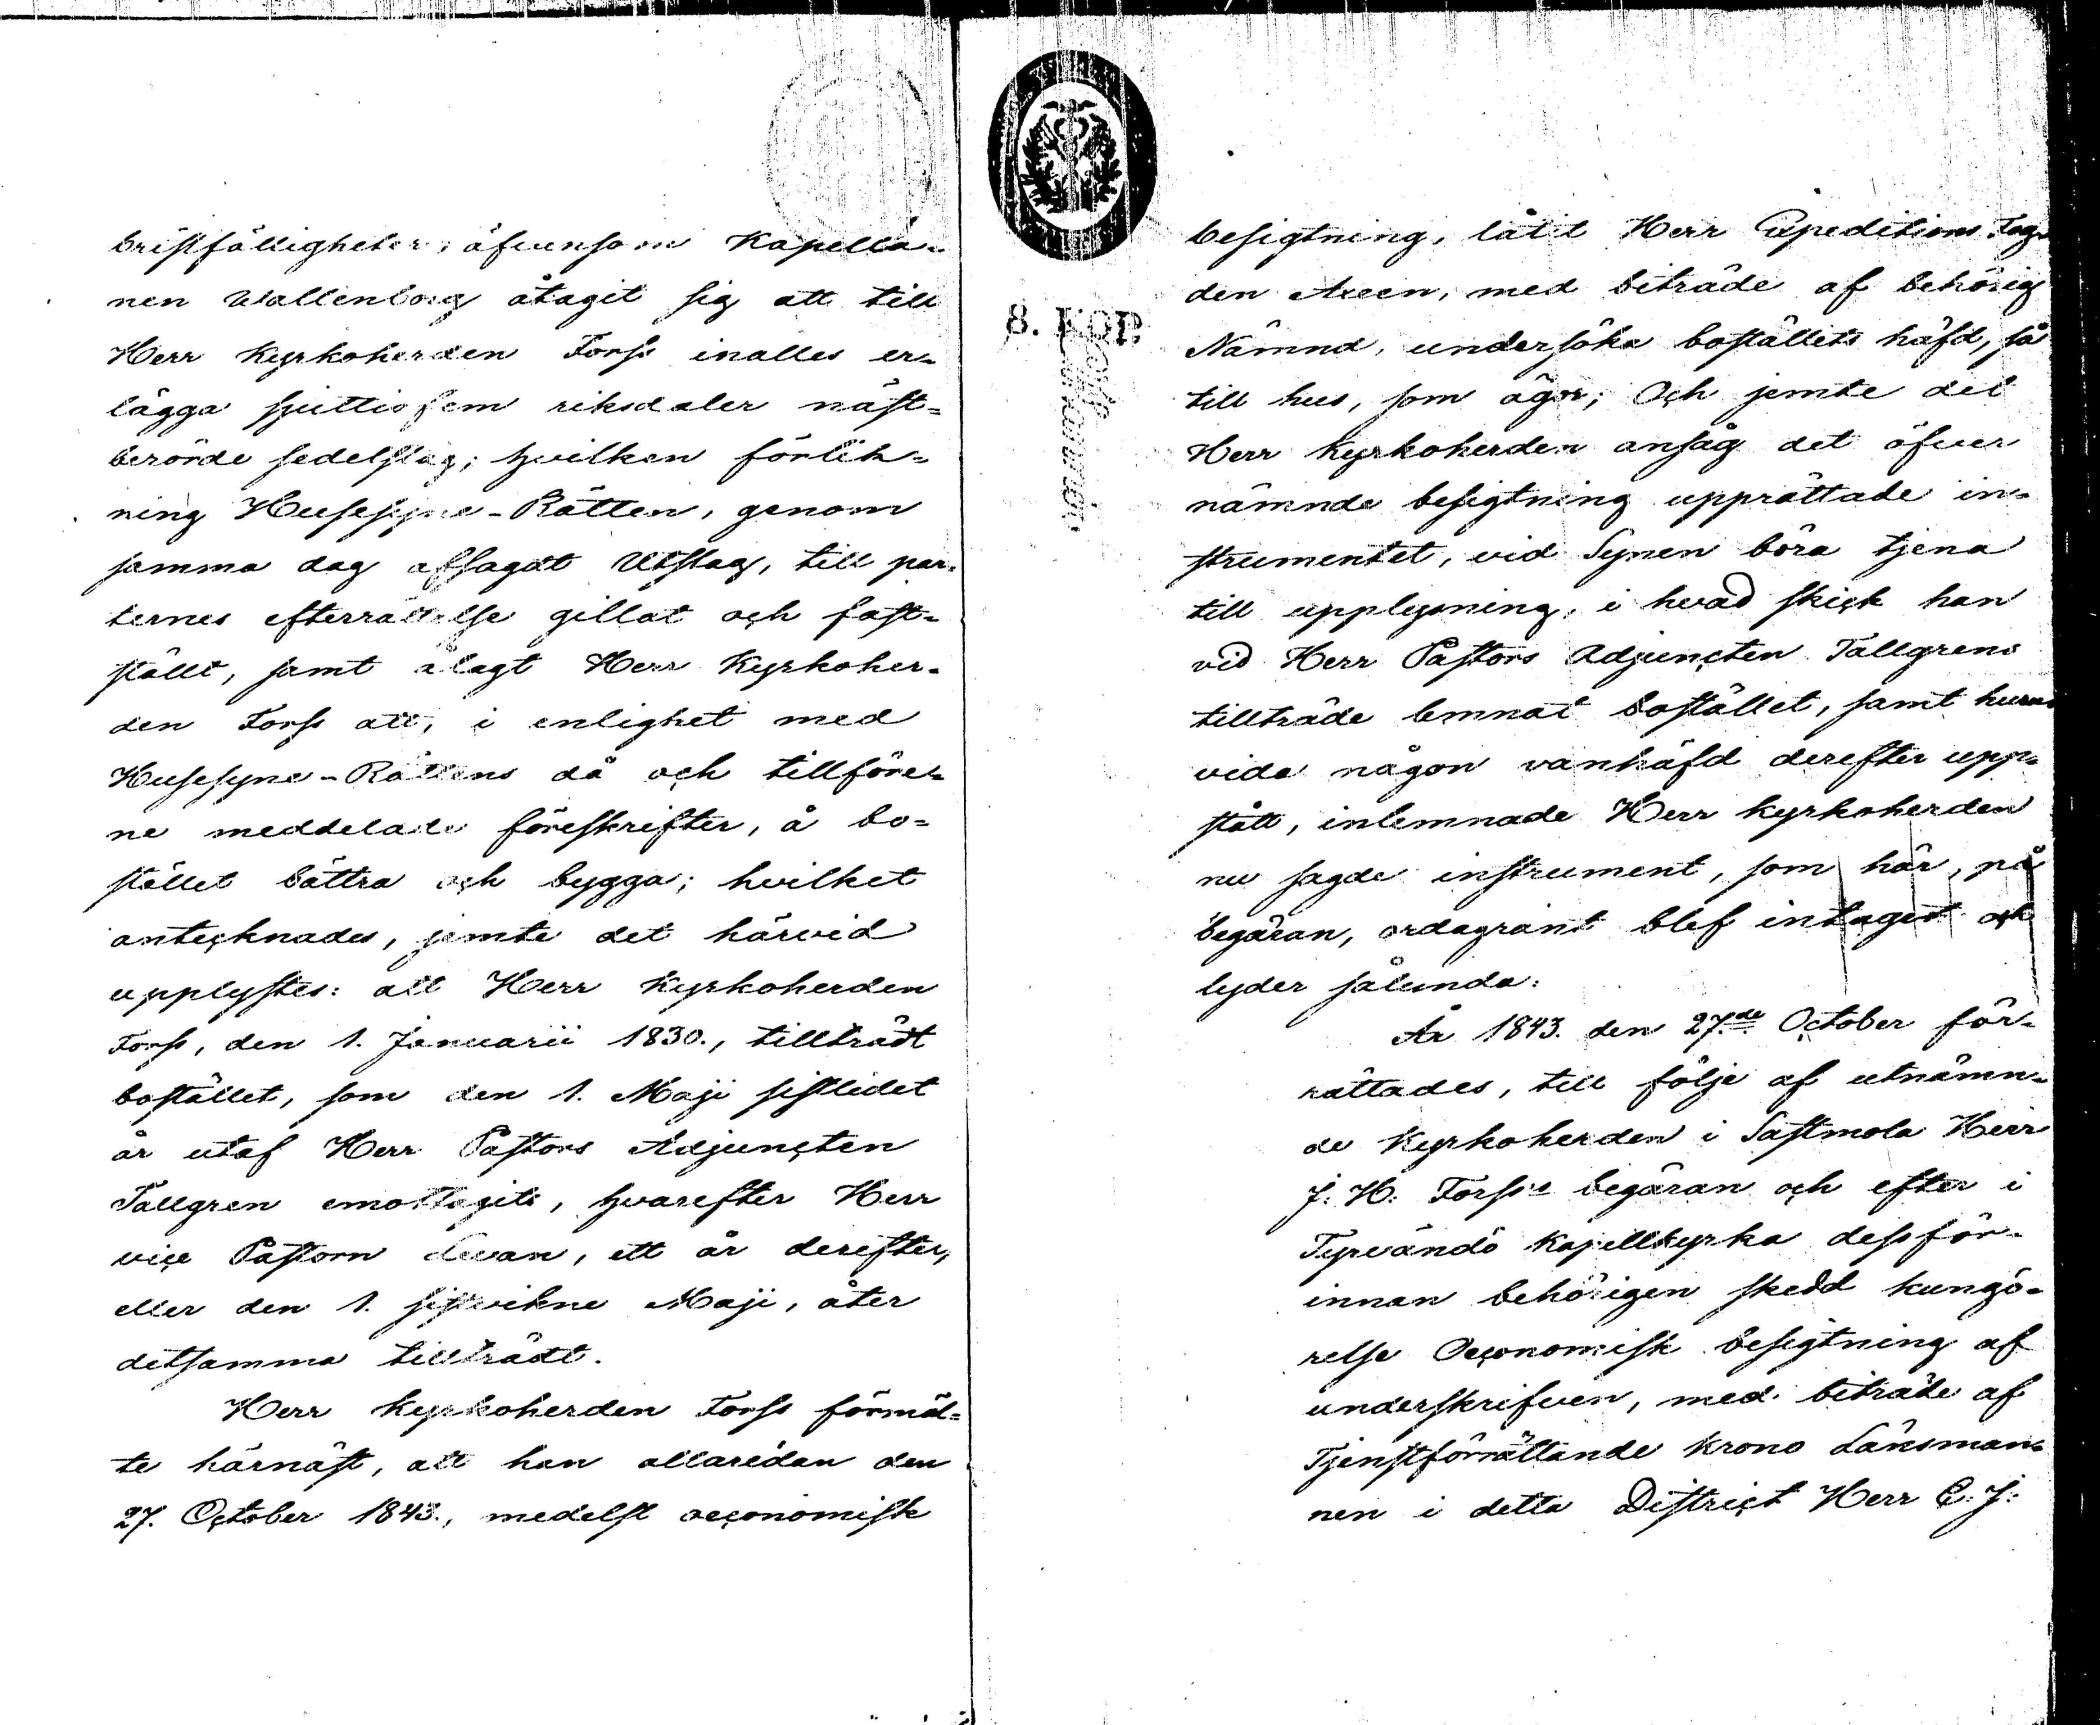 bristfälligheter, äfvensom Kapella-
nen Wallenborg åtagit sig att till
Herr Kyrkoherden Forss inalles er-
lägga sjuttiofem riksdaler näst-
berörde sedelslag; hvilken förlik-
ning Husesyne-Rätten, genom
samma dag afsagdt Utslag, till par-
ternes efterrättelse gillat och fast-
ställt, samt ålagt Herr Kyrkoher-
den Forss att, i enlighet med
Husesyne-Rättens då och tillföre-
ne meddelade föreskrifter, å bo-
stället bättra och bygga; hvilket
antecknades, jemte det härvid
upplystes: att Herr Kyrkoherden
Forss, den 1. Januarii 1830., tillträdt
bostället, som den 1. Maji sistledet
år utaf Herr Pastors Adjuncten
Tallgren emottagits, hvarefter Herr
vice Pastorn Levan, ett år derefter,
eller den 1. sistvikne Maji, åter
detsamma tillträdt.
Herr Kyrkoherden Forss förmäl-
te härnäst, att han allaredan den
27. October 1843., medelst oeconomisk
8. KOP.
besigtning, låtit Herr Expeditions Fog-
den Areen, med biträde af behörig
Nämnd, undersöka boställets häfd, så
till hus, som ägor; Och jemte det
Herr Kyrkoherden ansåg det öfver
nämnde besigtning upprättade in-
strumentet, vid Synen böra tjena
till upplysning, i hvad skick han
vid Herr Pastors Adjuncten Tallgrens
tillträde lemnat bostället, samt huru
vida någon vanhäfd derefter upp-
stått, inlemnade Herr Kyrkoherden
nu sagde instrument, som här, på
begäran, ordagrant blef intaget och
lyder sålunda:
År 1843. den 27.de October för-
rättades, till följe af utnämn-
de Kyrkoherden i Sastmola Herr
J. H. Forss's begäran och efter i
Tyrvändö Kapellkyrka dessför-
innan behörigen skedd kungö-
relse Oeconomisk besigtning af
underskrifven, med biträde af
Tjenstförrättande Krono Länsman-
nen i detta District Herr C. J.